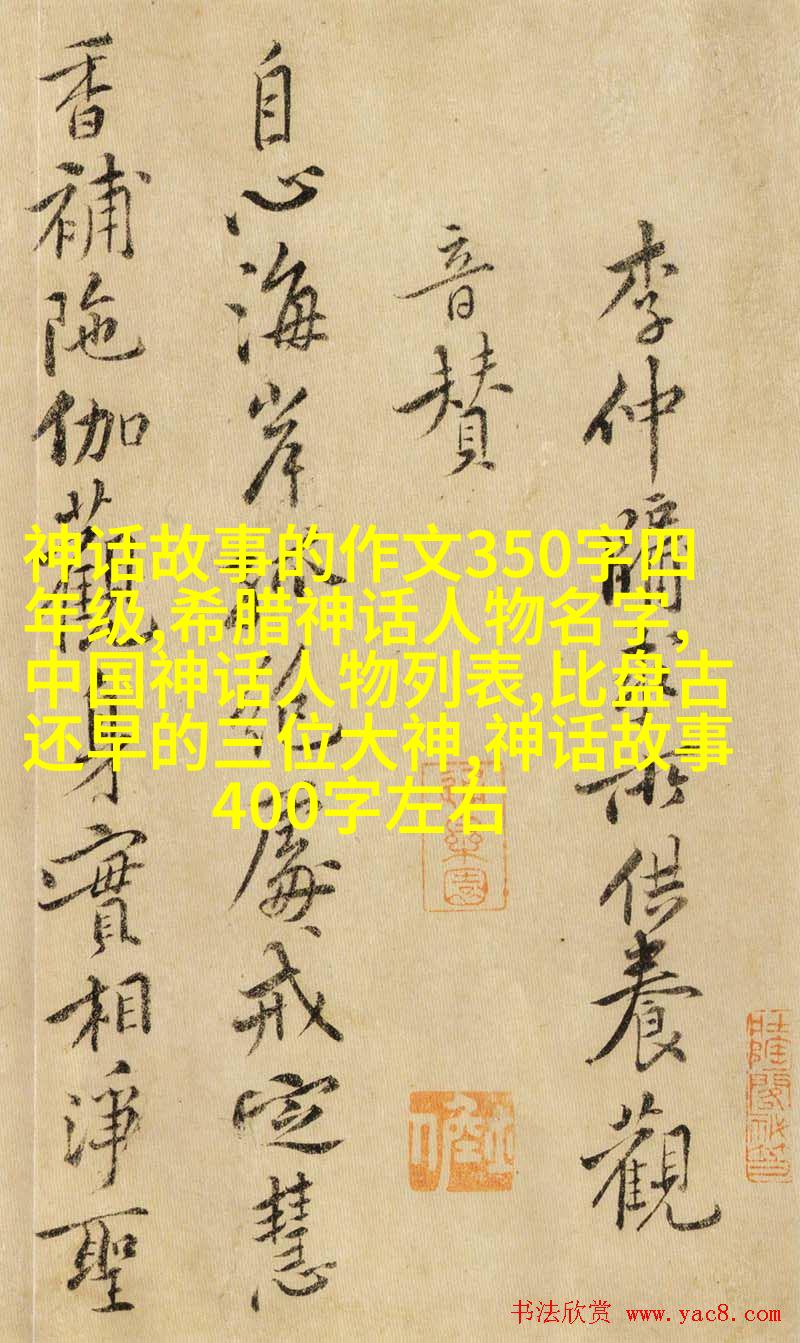 李仲牖所供養觀
音贊
自心海岸孤絶處戒定慧
香補陁伽觀身實相淨聖
神话故事的作文350字四
年级,希腊神话人物名字,
中国神话人物列表,比盘古
还早的三位大神,神话故事
400字左右
书法欣赏 www.yac8.com